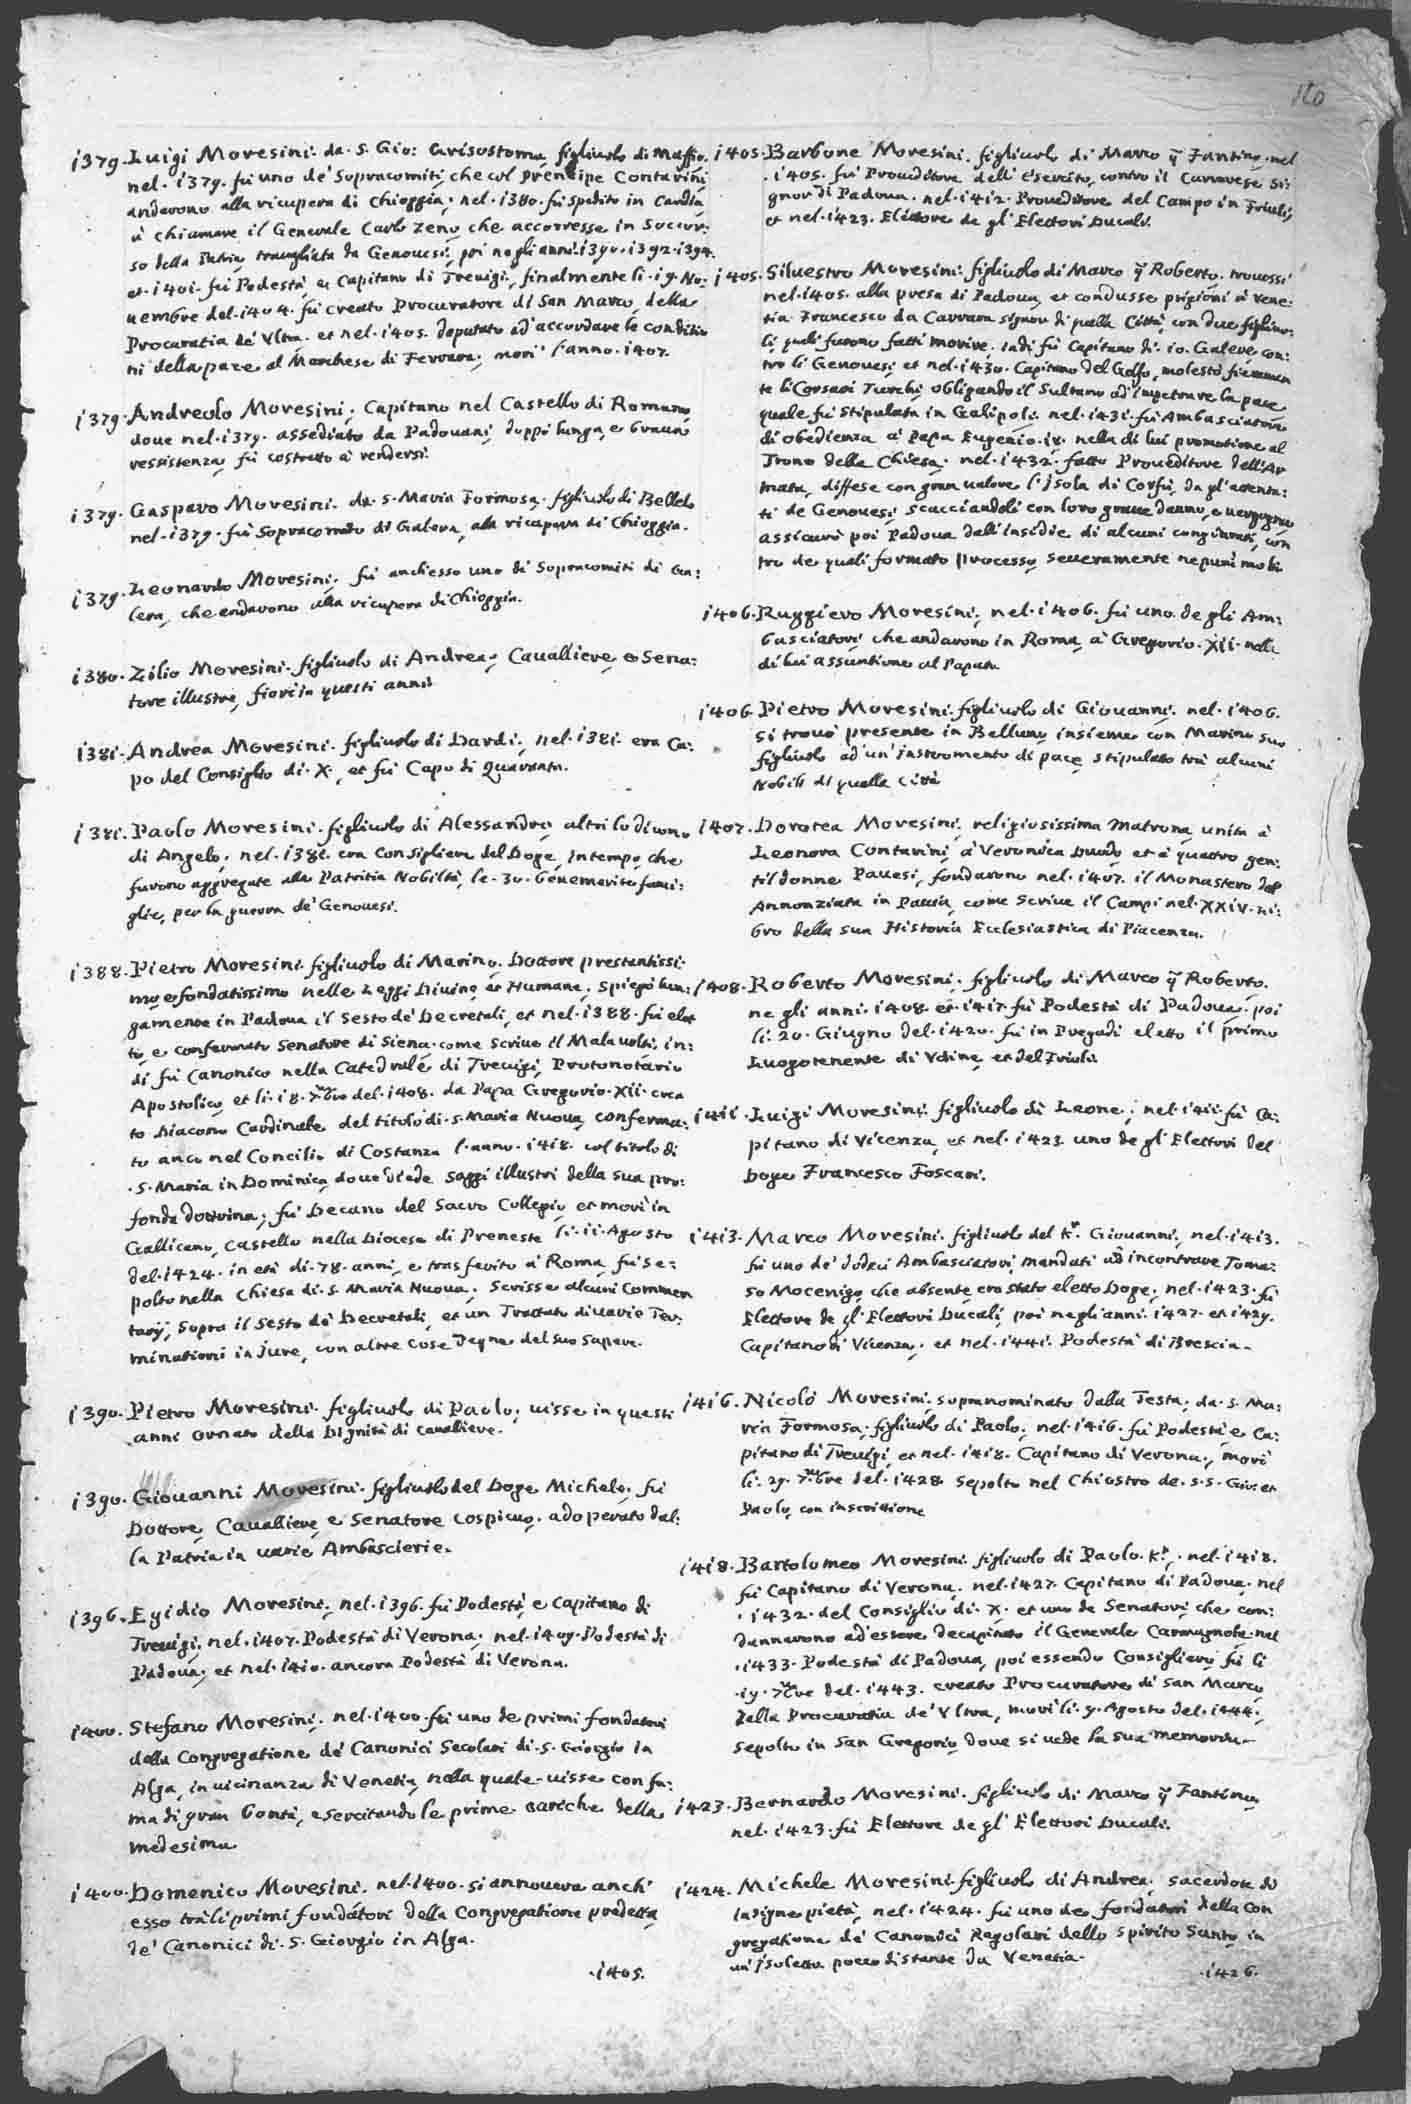 120
1379. Luigi Moresini. da. S. Gio: Grisostomo, figliuolo di Maffio.
nel. 1379. fù uno de' Sopracomiti, che col Prencipe Contarini
andarono alla ricupera di Chioggia; nel. 1380. fù spedito in Candia
à chiamare il Generale Carlo Zeno, che accorresse in Soccor:
so della Patria, travagliata da Genovesi; poi negli anni. 1390. 1392. 1394.
et. 1401. fù Podestà, e Capitano di Trevigi; finalmente li. 19. No:
vembre del. 1404. fù creato Procuratore di San Marco, della
Procuratia de' Vltra. et nel. 1405. deputato ad' accordare le conditio
ni della pace al Marchese di Ferrara; morì l'anno. 1407.
1379. Andreolo Moresini. Capitano nel Castello di Romano
dove nel. 1379. assediato da Padovani, doppò lunga, e brava
ressistenza, fù costretto à rendersi.
1379. Gasparo Moresini. da. S. Maria Formosa. figliuolo di Belleto
nel. 1379. fù Sopracomito di Galera, alla ricupera di Chioggia.
1379. Leonardo Moresini, fù anch'esso uno di Sopracomiti di Ga:
lera, che andarono alla ricupera di Chioggia.
1380. Zilio Moresini. figliuolo di Andrea; Cavalliere, e Sena:
tore illustre, fiorì in questi anni.
1381. Andrea Moresini. figliuolo di Dardi; nel. 1381. era Ca:
po del Consiglio di. X., et fù Capo di Quaranta.
1381. Paolo Moresini. figliuolo di Alessandro, altri lo dicono
di Angelo; nel. 1381. era Consigliere del Doge, in tempo, che
furono aggregate alla Patritia Nobiltà, le. 30. benemerite fami:
glie, per la guerra de' Genovesi.
1388. Pietro Moresini. figliuolo di Marino. Dottore prestantissi:
mo, e fondatissimo nelle Leggi Divine, et Humane; Spiegò lun:
gamente in Padova il Sesto de' Decretali, et nel. 1388. fù elet
to, e confermato Senatore di Siena. come scrive il Malavolti. in:
di fù Canonico nella Catedrale di Trevigi, Protonotario
Apostolico, et li. 18. 7mbre del. 1408. da Papa Gregorio. XII. crea
to Diacono Cardinale del titolo di. S. Maria Nuova, conferma:
to anco nel Concilio di Costanza l'anno. 1418. col titolo di
. S. Maria in Dominica, dove diede saggi illustri della sua pro:
fonda dottrina; fù Decano del Sacro Collegio, et morì in
Gallicano, Castello nella Diocese di Preneste li. 11. Agosto
del. 1424. in età di. 78. anni, e trasferito à Roma, fù se:
polto nella Chiesa di. S. Maria Nuova. Scrisse alcuni Commen
tarij, sopra il Sesto de' Decretali, et un Trattato di varie Ter:
minationi in Jure, con altre cose degne del suo sapere.
1390. Pietro Moresini. figliuolo di Paolo; visse in questi
anni ornato della Dignità di Cavaliere.
1390. Giovanni Moresini. figliuolo del Doge Michele. fù
Dottore, Cavalliere, e Senatore cospicuo. adoperato dal:
la Patria in varie Ambascierie.
1396. Egidio Moresini, nel. 1396. fù Podestà, e Capitano di
Trevigi, nel. 1407. Podestà di Verona; nel. 1409. Podestà di
Padova; et nel. 1410. ancora Podestà di Verona.
1400. Stefano Moresini, nel. 1400. fù uno de primi fondatori
della Congregatione de' Canonici Secolari di. S. Giorgio in
Alga, in vicinanza di Venetia, nella quale visse con fa:
ma di gran bontà, esercitando le prime cariche della
medesima
1400. Domenico Moresini. nel. 1400. si annovera anch'
esso trà li primi fondatori della Congregatione predetta
de' Canonici di. S. Giorgio in Alga.
. 1405.
1405. Barbone Moresini. figliuolo di Marco q. Fantino. nel
. 1405. fù Proveditore dell' Esercito, contro il Carrarese Si:
gnor di Padova. nel. 1412. Proveditore del Campo in Friuli,
et nel. 1423. Elettore de gl' Elettori Ducali.
1405. Silvestro Moresini. figliuolo di Marco q. Roberto. trovossi
nel. 1405. alla presa di Padova, et condusse prigioni à Vene:
tia Francesco da Carrara signor di quella Città, con due figliuo:
li, quali furono fatti morire. Indi fù Capitano di. 10. Galere con:
tro li Genovesi, et nel. 1430. Capitano del Golfo, molestò fieramen
te li Corsari Turchi, obligando il Sultano ad' impetrare la pace
quale fù stipulata in Galipoli; nel. 1431. fù Ambasciatore
di obedienza à Papa Eugenio. IV. nella di lui promotione al
Trono della Chiesa; nel. 1432. fatto Proveditore dell' Ar
mata, diffese con gran valore l'Isola di Corfù, da gl' attenta:
ti de Genovesi; scacciandoli con loro grave danno, e vergogna
assicurò poi Padova dall' insidie di alcuni congiurati, con
tro de quali formato processo, severamente ne punì molti
1406. Ruggiero Moresini, nel. 1406. fù uno de gli Am:
basciatori che andarono in Roma, à Gregorio. XII. nella
di lui assuntione al Papato
1406. Pietro Moresini. figliuolo di Giovanni, nel. 1406.
si trovò presente in Belluno, insieme con Marino suo
figliuolo ad' un' instromento di pace, stipulato trà alcuni
Nobili di quella Città
1407. Dorotea Moresini, religiosissima Matrona, unita à
Leonora Contarini, à Veronica Duodo, et à quattro gen:
til'donne Pavesi, fondarono nel. 1407. il Monastero dell'
Annonziata in Pavia, come scrive il Campi nel. XXIV. Li:
bro della sua Historia Ecclesiastica di Piacenza.
1408. Roberto Moresini, figliuolo di Marco q. Roberto.
ne gli anni. 1408. et. 1417. fù Podestà di Padova. poi
li. 20. Giugno del. 1420. fù in Pregadi eletto il primo
Luogotenente di Vdine, et del Friuli.
1411. Luigi Moresini. figliuolo di Leone; nel. 1411. fù Ca:
pitano di Vicenza, et nel. 1423. uno de gl' Elettori del
Doge Francesco Foscari.
1413. Marco Moresini. figliuolo del Kr. Giovanni, nel. 1413.
fù uno de' dodeci Ambasciatori, mandati ad incontrare Toma:
so Mocenigo, che absente, era stato eletto Doge; nel. 1423. fù
Elettore de gl' Elettori Ducali, poi negli anni. 1427. et 1429.
Capitano di Vicenza; et nel. 1441. Podestà di Brescia.
1416. Nicolò Moresini. sopranominato dalla Testa, da. S. Ma:
ria Formosa. figliuolo di Paolo; nel. 1416. fù Podestà e Ca:
pitano di Trevigi, et nel. 1418. Capitano di Verona; morì
li. 29. 7mbre del. 1428. sepolto nel Chiostro de. S. S. Gio: et
Paolo, con inscrittione
1418. Bartolomeo Moresini. figliuolo di Paolo. Kr. nel. 1418.
fù Capitano di Verona; nel. 1427. Capitano di Padova; nel
. 1432. del Consiglio di. X. et uno de Senatori, che con:
dannarono ad' essere decapitato il Generale Carmagnola. nel
. 1433. Podestà di Padova, poi essendo Consigliere, fù li
. 19. 7mbre del. 1443. creato Procuratore di San Marco
della Procuratia de' Vltra, morì li. 9. Agosto del. 1444.,
sepolto in San Gregorio, dove si vede la sua memoria.
1423. Bernardo Moresini. figliuolo di Marco q. Fantino,
nel. 1423. fù Elettore de gl' Elettori Ducali.
1424. Michele Moresini. figliuolo di Andrea. sacerdote di
insigne pietà, nel. 1424. fù uno de fondatori della Con
gregatione de' Canonici Regolari dello Spirito Santo, in
un' Isoletta poco distante da Venetia.
. 1426.